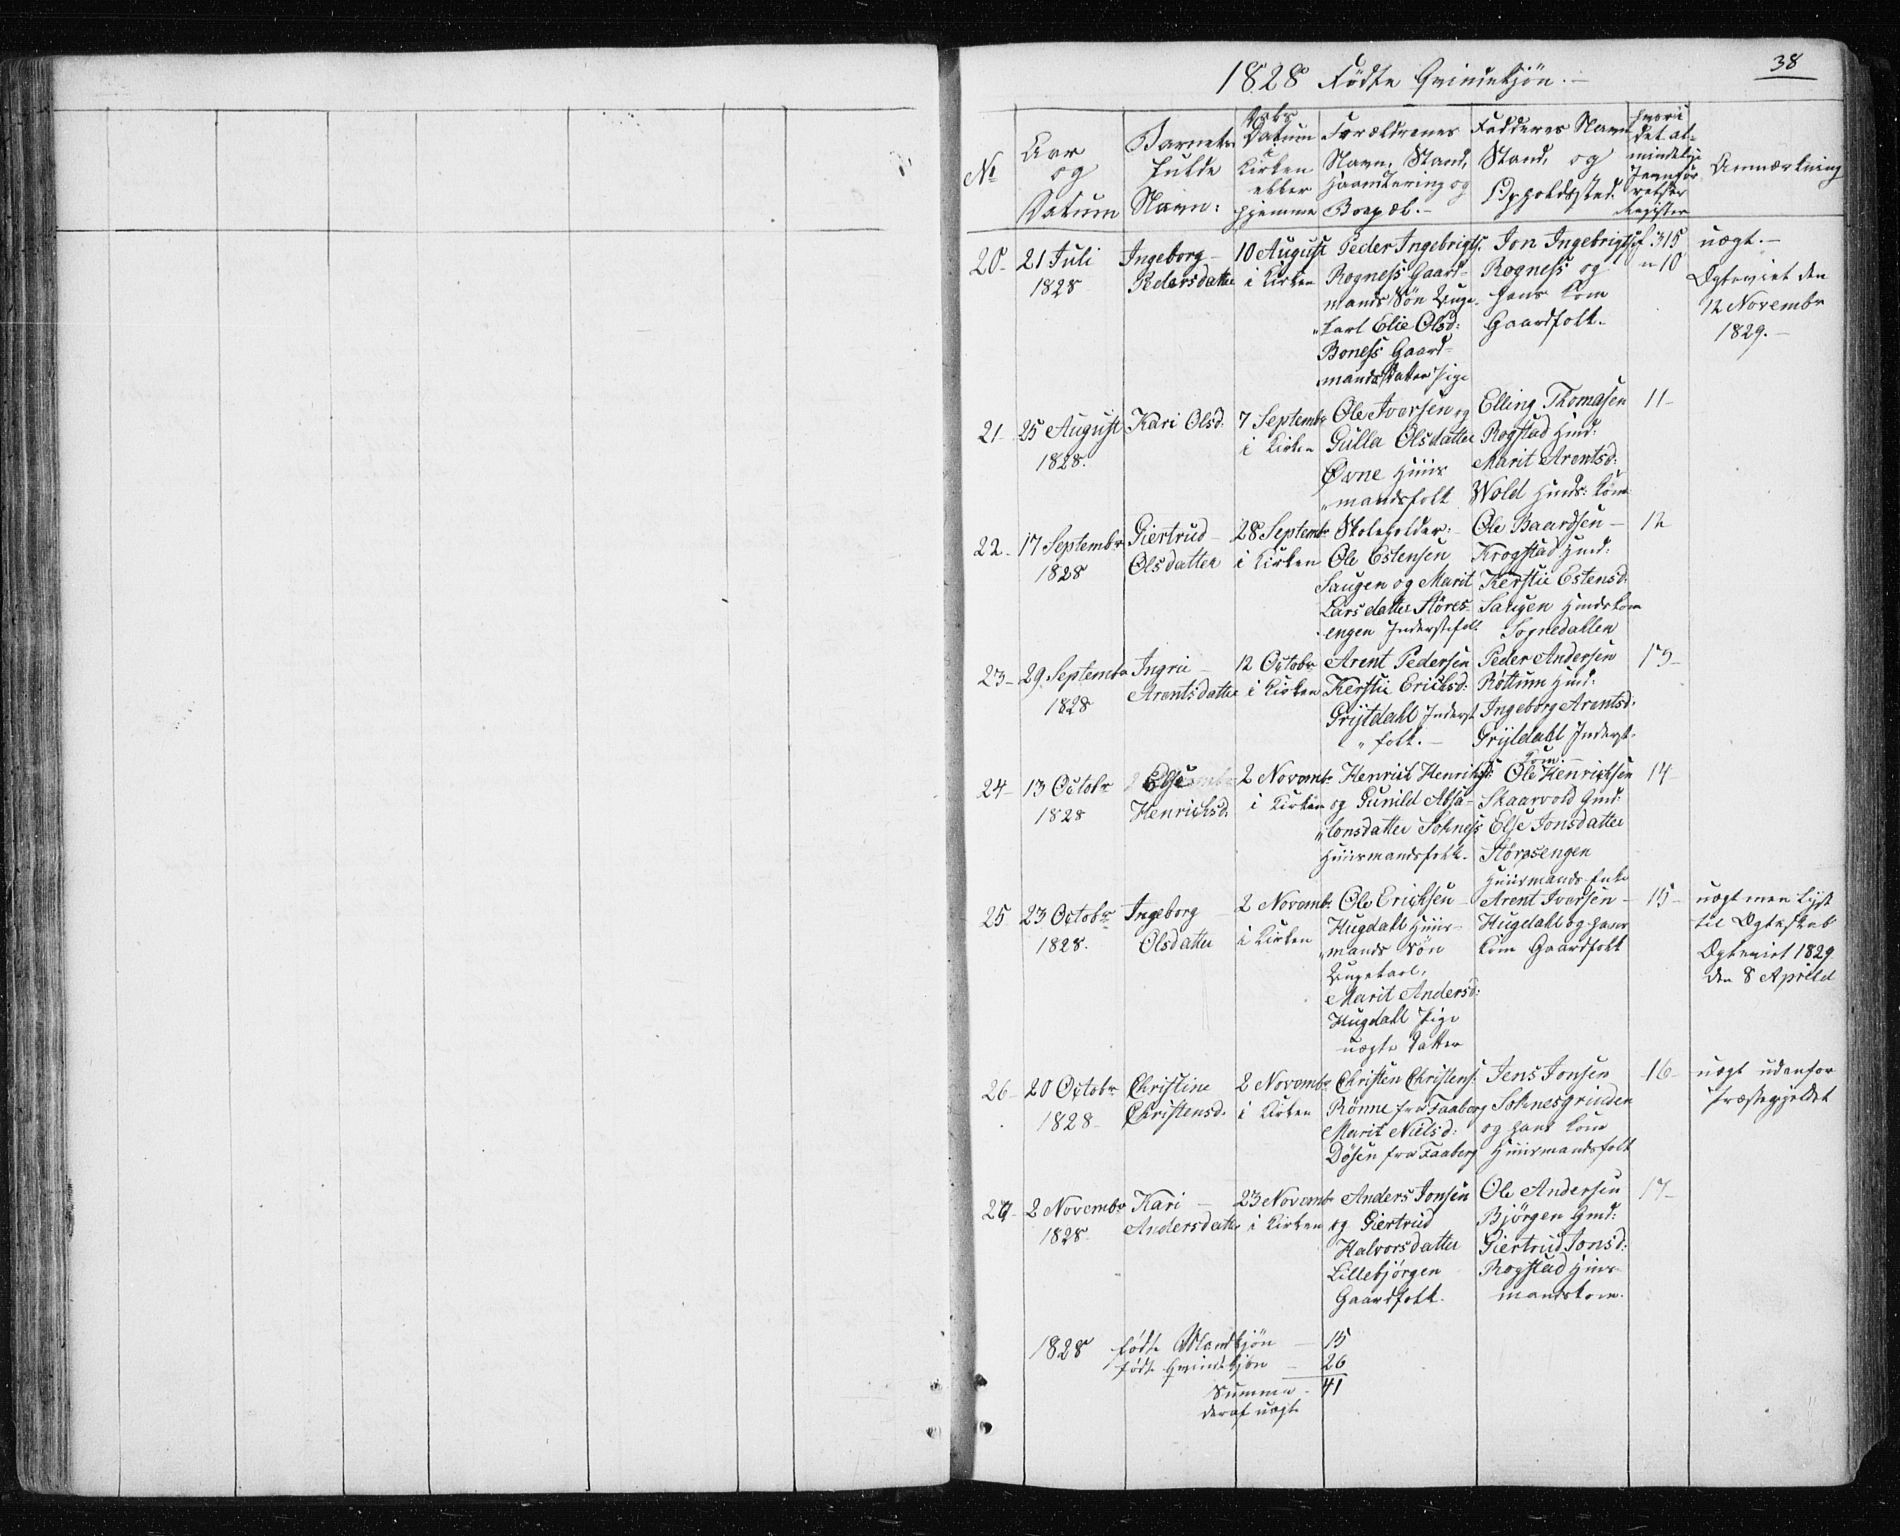 38
1828 Fødte Qvindekjøn.
No
Aar
og
Datum
Barnets
fulde
Navn:
Daabs
Datum
i
Kirken
eller
hjemme
Forældrenes
Navn, Stand,
Haandtering og
Bopæl.
Faddernes Navn
Stand, og
Opholdssted.
hvori
det al-
mindelige
Jevnfør
relses
Register
Anmærkning
20- 21 Juli
1828
Ingeborg
Pedersdatter
10 August
i Kirken
Peder Ingebrigts.
Rogness Gaard-
mands Søn Unge-
karl Elie Olsd:
Boness Gaard-
mandsdatter Pige
Jon Ingebrigts.
Rogness og
hans Kone
Gaardfolk.
f 315
n 10
uægt.-
Ægteviet den
12 Novembr
1829.-
21- 25 August
1828.
Kari Olsd.
7 Septembr
i Kirken
Ole Iversen og
Gulla Olsdatter
Øvne Huus
mandsfolk
Elling Thomasen
Rogstad Hmd:
Marit Arentsd:
Wold Hmds: Kone
11-
22- 17 Septembr
1828
Giertrud
Olsdatter
28 Septembr
i Kirken
Skoleholder:
Ole Estensen
Saugen og Marit
Larsdatter Støres-
engen Inderstfolk
Ole Baardsen
Krogstad Hmd:
Kerstie Estensd:
Saugen Hmdskone
Sognedahlen
12
23- 29 Septembr
1828
Ingrie
Arentsdatter
12 Octobr
i Kirken
Arent Pedersen
Kerstie Ericksd:
Grytdahl Inderst
folk.-
Peder Andersen
Røttum Hmd:
Ingeborg Arentsd:
Grytdahl Inderst-
Kone.-
13-
24- 13 Octobr
1828
Else
Henricksd.
2 Novembr
i Kirken
Henrick Henriks:
og Gunild Absa-
lonsdatter Sokness
Huusmandsfolk.
Ole Henricksen
Skaarvold Gmd:
Else Jonsdatter
Storøsengen
Huusmands Enke
14-
25 23 Octobr
1828.
Ingeborg
Olsdatter
2 Novembr
i Kirken
Ole Ericksen
Hugdahl Huus-
mands Søn
Ungekarl,
Marit Andersd:
Hugdahl Pige
uægte Datter
Arent Iversen
Hugdahl og hans
Kone Gaardfolk
15-
uægt men lyst
til Ægteskab
Ægteviet 1829
den 8 Aprild
26- 20 Octobr
1828-
Christine
Christensd.
2 Novembr
i Kirken
Christen Christens:
Rønne fra Faaberg
Marit Nielsd:
Døsen fra Faaberg
Jens Jonsen
Soknesgrinden
og hans Kone
Huusmandsfolk
16-
uægt udenfor
Præstegjeldet
27- 2 Novembr
1828.
Kari
Andersdatter
23 Novembr
i Kirken
Anders Jonsen
og Giertrud
Halvorsdatter
Lillebjørgen
Gaardfolk.
Ole Andersen
Bjørgen Gmd:
Giertrud Jonsd:
Rogstad Huus-
mandskone.
17-
1828 fødte Mandkjøn - 15
fødte Qvindekjøn - 26
Summa - 41
deraf uægte